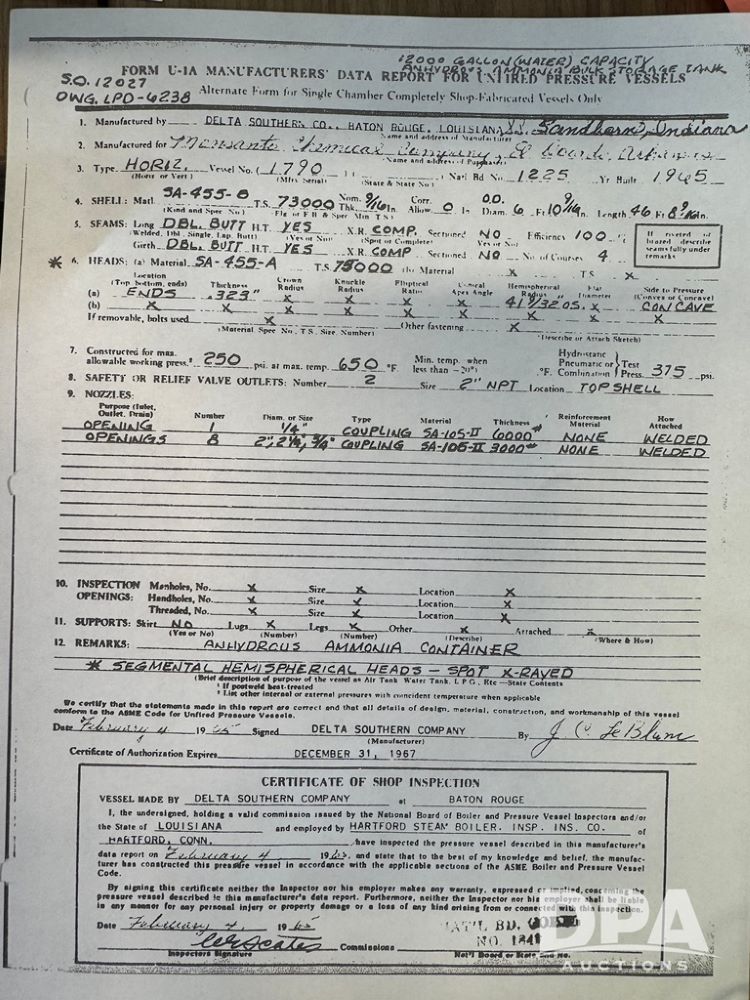 12000 GALLON (WATER) CAPACITY
ANHYDROUS AMMONIA BULK STORAGE TANK
S.O. 12027
FORM U-1A MANUFACTURERS' DATA REPORT FOR UNFIRED PRESSURE VESSELS
DWG. LPD-6238
Alternate Form for Single Chamber Completely Shop-Fabricated Vessels Only
1. Manufactured by DELTA SOUTHERN CO., BATON ROUGE, LOUISIANA Sandborn, Indiana
(Name and address of Manufacturer)
2. Manufactured for Monsanto Chemical Company, El Dorado, Arkansas
(Name and address of Purchaser)
3. Type HORIZ. Vessel No. (1790) ( ) Nat'l Bd No. 1225 Yr Built 1965
(Horiz or Vert) (Mfrs Serial) (State & State No)
4. SHELL: Matl. SA-455-B T.S. 73000 Nom. Thk. 9/16 In. Corr. Allow. 0 In O.D. Diam. 6 Ft 10 9/16 In. Length 46 Ft 8 9/16 In.
(Kind and Spec No)
5. SEAMS: Long DBL. BUTT H.T. YES X.R. COMP. Sectioned NO Efficiency 100 %
(Welded, Dbl, Single, Lap, Butt) (Yes or No) (Spot or Complete) Yes or No
Girth DBL. BUTT H.T. YES X.R. COMP Sectioned NO No. of Courses 4
If riveted or brazed describe seams fully under remarks
* 6. HEADS: (a) Material SA-455-A T.S. 75000 (b) Material X T.S. X
Location (Top, bottom, ends) Thickness Crown Radius Knuckle Radius Elliptical Ratio Conical Apex Angle Hemispherical Radius Flat Diameter Side to Pressure (Convex or Concave)
(a) ENDS .323" X X X X 41 9/32 OS. X CONCAVE
(b) X X X X X X X X X
If removable, bolts used X Other fastening X
(Material Spec No, T.S. Size, Number) (Describe or Attach Sketch)
7. Constructed for max. allowable working press.¹ 250 psi. at max. temp. 650 °F. Min. temp. when less than -20°) °F. Hydrostatic Pneumatic or Combination } Test Press. 375 psi.
8. SAFETY OR RELIEF VALVE OUTLETS: Number 2 Size 2" NPT Location TOP SHELL
9. NOZZLES:
Purpose (Inlet, Outlet, Drain) Number Diam. or Size Type Material Thickness Reinforcement Material How Attached
OPENING 1 1/4" COUPLING SA-105-II 6000# NONE WELDED
OPENINGS 8 2", 2 1/2", 3/4" COUPLING SA-105-II 3000# NONE WELDED
10. INSPECTION OPENINGS: Manholes, No. X Size X Location X
Handholes, No. X Size X Location X
Threaded, No. X Size X Location X
11. SUPPORTS: Skirt NO Lugs X Legs X Other X Attached X
(Yes or No) (Number) (Number) (Describe) (Where & How)
12. REMARKS: ANHYDROUS AMMONIA CONTAINER
* SEGMENTAL HEMISPHERICAL HEADS — SPOT X-RAYED
(Brief description of purpose of the vessel as Air Tank Water Tank, L P G, Etc —State Contents
¹ If postweld heat-treated
² List other internal or external pressures with coincident temperature when applicable
We certify that the statements made in this report are correct and that all details of design, material, construction, and workmanship of this vessel
conform to the ASME Code for Unfired Pressure Vessels.
Date February 4 1965 Signed DELTA SOUTHERN COMPANY By J C LeBlanc
(Manufacturer)
Certificate of Authorization Expires DECEMBER 31, 1967
CERTIFICATE OF SHOP INSPECTION
VESSEL MADE BY DELTA SOUTHERN COMPANY at BATON ROUGE
I, the undersigned, holding a valid commission issued by the National Board of Boiler and Pressure Vessel Inspectors and/or
the State of LOUISIANA and employed by HARTFORD STEAM BOILER. INSP. INS. CO. of
HARTFORD, CONN. have inspected the pressure vessel described in this manufacturer's
data report on February 4 1965, and state that to the best of my knowledge and belief, the manufac-
turer has constructed this pressure vessel in accordance with the applicable sections of the ASME Boiler and Pressure Vessel
Code.
By signing this certificate neither the Inspector nor his employer makes any warranty, expressed or implied, concerning the
pressure vessel described in this manufacturer's data report. Furthermore, neither the Inspector nor his employer shall be liable
in any manner for any personal injury or property damage or a loss of any kind arising from or connected with this inspection.
Date February 4, 1965 NAT'L BD.
Commissions NO. 1841
Inspectors Signature Nat'l Board or State and No.
DPA
AUCTIONS